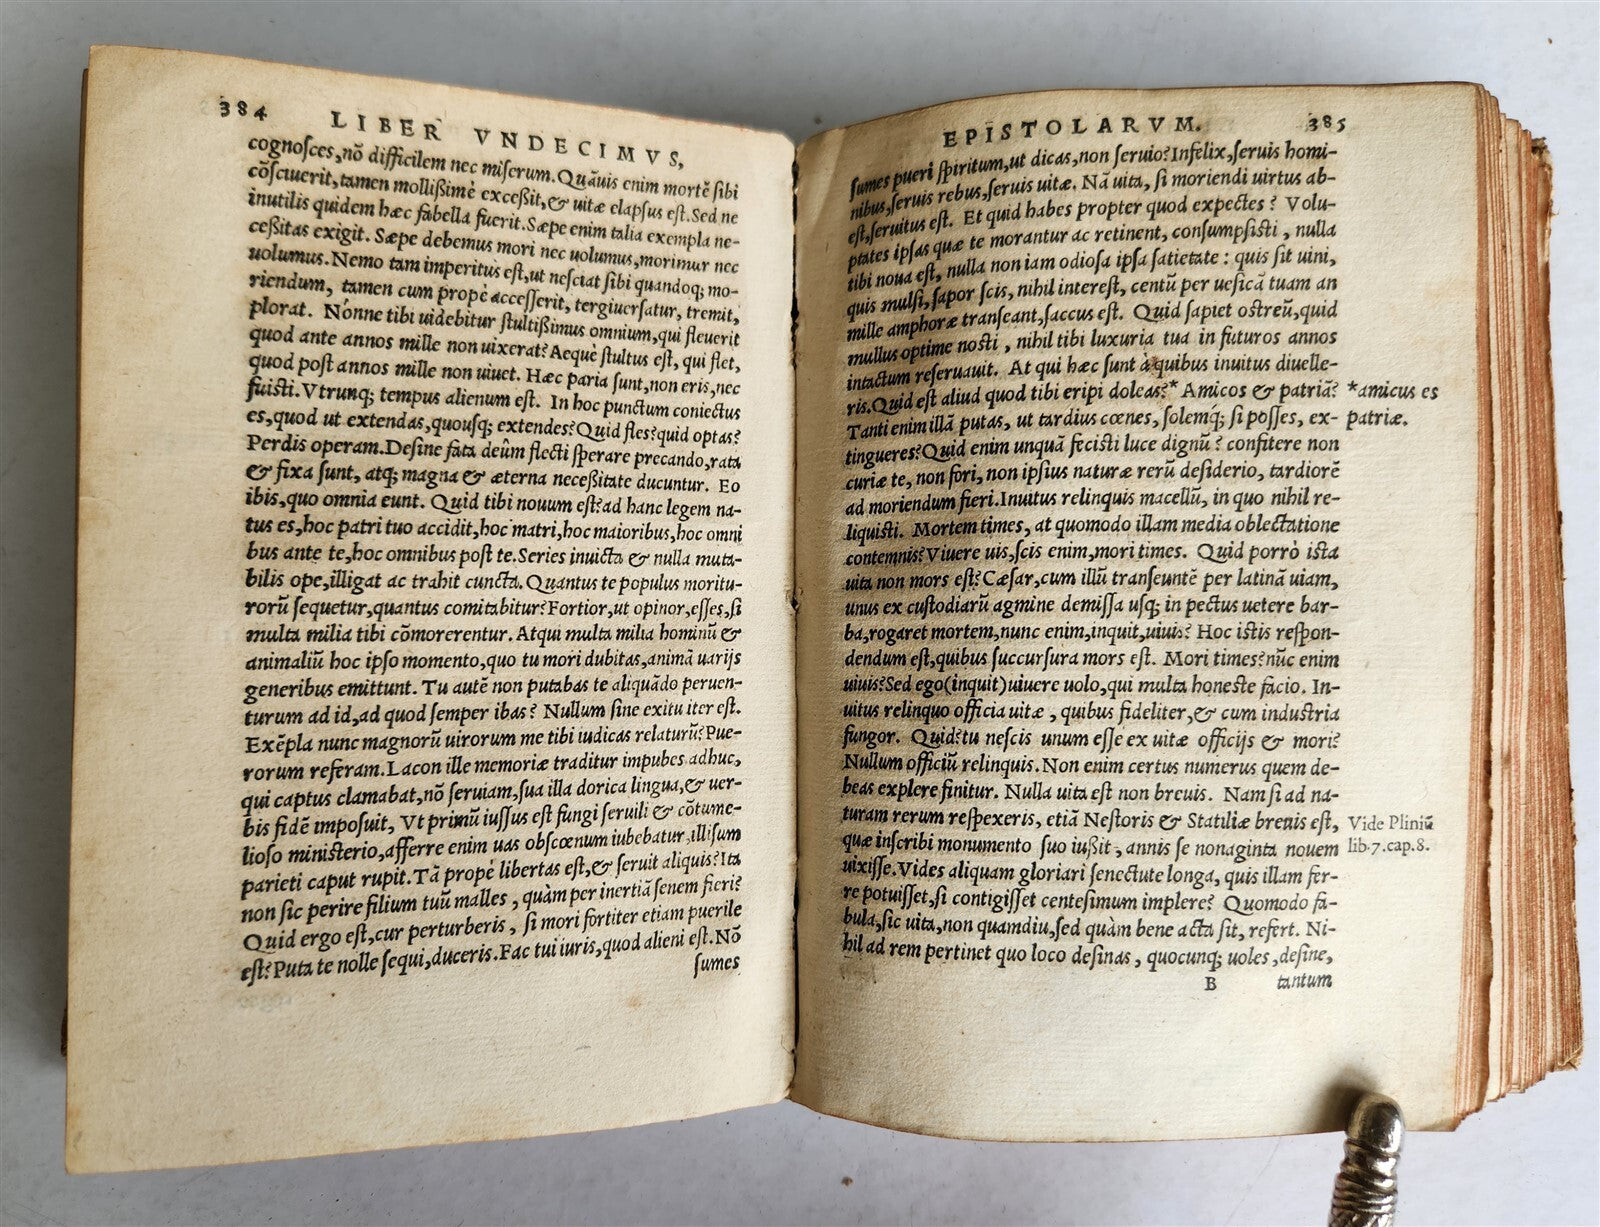 384
LIBER VNDECIMVS,
cognoſces,nõ difficilem nec miſerum.Quãuis enim mortẽ ſibi
cõſciuerit,tamen mollißimè exceßit,& uitæ elapſus eſt.Sed ne
inutilis quidem hæc fabella fuerit.Sæpe enim talia exempla ne-
ceßitas exigit. Sæpe debemus mori nec uolumus,morimur nec
uolumus.Nemo tam imperitus eſt,ut neſciat ſibi quandoq; mo-
riendum, tamen cum propè acceſſerit, tergiuerſatur, tremit,
plorat. Nónne tibi uidebitur ſtultißimus omnium,qui fleuerit
quod ante annos mille non uixerat? Aequè ſtultus eſt, qui flet,
quod poſt annos mille non uiuet. Hæc paria ſunt,non eris,nec
fuiſti.Vtrunq; tempus alienum eſt. In hoc punctum coniectus
es,quod ut extendas,quouſq; extendes?Quid fles?quid optas?
Perdis operam.Deſine fata deûm flecti ſperare precando,rata
& fixa ſunt, atq; magna & æterna neceßitate ducuntur. Eo
ibis,quo omnia eunt. Quid tibi nouum eſt?ad hanc legem na-
tus es,hoc patri tuo accidit,hoc matri,hoc maioribus,hoc omni
bus ante te,hoc omnibus poſt te.Series inuicta & nulla muta-
bilis ope,illigat ac trahit cuncta.Quantus te populus moritu-
rorũ ſequetur,quantus comitabitur?Fortior,ut opinor,eſſes,ſi
multa milia tibi cõmorerentur. Atqui multa milia hominũ &
animaliũ hoc ipſo momento,quo tu mori dubitas,animã uarijs
generibus emittunt. Tu autẽ non putabas te aliquãdo peruen-
turum ad id,ad quod ſemper ibas? Nullum ſine exitu iter eſt.
Exẽpla nunc magnorũ uirorum me tibi iudicas relaturũ?Pue-
rorum referam.Lacon ille memoriæ traditur impubes adhuc,
qui captus clamabat,nõ ſeruiam,ſua illa dorica lingua,& uer-
bis fidẽ impoſuit, Vt primũ iuſſus eſt fungi ſeruili & cõtume-
lioſo miniſterio,afferre enim uas obſcœnum iubebatur,illiſum
parieti caput rupit.Tã propè libertas eſt,& ſeruit aliquis?Ita
non ſic perire filium tuũ malles , quàm per inertiã ſenem fieri?
Quid ergo eſt,cur perturberis , ſi mori fortiter etiam puerile
eſt?Puta te nolle ſequi,duceris.Fac tui iuris,quod alieni eſt.Nõ
ſumes
EPISTOLARVM. 385
ſumes pueri ſpiritum,ut dicas,non ſeruio?Infelix,ſeruis homi-
nibus,ſeruis rebus,ſeruis uitæ. Nã uita, ſi moriendi uirtus ab-
eſt,ſeruitus eſt. Et quid habes propter quod expectes? Volu-
ptates ipſas quæ te morantur ac retinent, conſumpſiſti , nulla
tibi noua eſt, nulla non iam odioſa ipſa ſatietate : quis ſit uini,
quis mulſi,ſapor ſcis, nihil intereſt, centũ per ueſicã tuam an
mille amphoræ tranſeant,ſaccus eſt. Quid ſapiet oſtreũ,quid
mullus optime noſti , nihil tibi luxuria tua in futuros annos
intactum reſeruauit. At qui hæc ſunt à quibus inuitus diuelle-
ris.Quid eſt aliud quod tibi eripi doleas?* Amicos & patriã?
*amicus es
patriæ.
Tanti enim illã putas, ut tardius cœnes, ſolemq; ſi poſſes, ex-
tingueres?Quid enim unquã feciſti luce dignũ? confitere non
curiæ te, non fori, non ipſius naturæ rerũ deſiderio, tardiorẽ
ad moriendum fieri.Inuitus relinquis macellũ, in quo nihil re-
liquiſti. Mortem times, at quomodo illam media oblectatione
contemnis?Viuere uis,ſcis enim,mori times. Quid porrò iſta
uita non mors eſt?Cæſar,cum illũ tranſeuntẽ per latinã uiam,
unus ex cuſtodiarũ agmine demiſſa uſq; in pectus uetere bar-
ba,rogaret mortem,nunc enim,inquit,uiuis? Hoc iſtis reſpon-
dendum eſt,quibus ſuccurſura mors eſt. Mori times?nũc enim
uiuis?Sed ego(inquit)uiuere uolo,qui multa honeſte facio. In-
uitus relinquo officia uitæ , quibus fideliter,& cum induſtria
fungor. Quid?tu neſcis unum eſſe ex uitæ officijs & mori?
Nullum officiũ relinquis.Non enim certus numerus quem de-
beas explere finitur. Nulla uita eſt non breuis. Nam ſi ad na-
turam rerum reſpexeris, etiã Neſtoris & Statiliæ breuis eſt,
Vide Pliniũ
lib.7.cap.8.
quæ inſcribi monumento ſuo iußit , annis ſe nonaginta nouem
uixiſſe.Vides aliquam gloriari ſenectute longa, quis illam fer-
re potuiſſet,ſi contigiſſet centeſimum implere? Quomodo fa-
bula,ſic uita,non quamdiu,ſed quàm bene acta ſit, refert. Ni-
hil ad rem pertinet quo loco deſinas , quocunq; uoles ,deſine,
B tantum